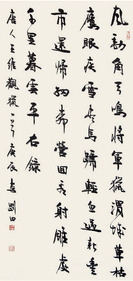 風勁角弓鳴將軍獵渭城草枯
鷹眼疾雪盡馬蹄輕忽過新豐
市還歸細柳營回看射雕處
千里暮雲平右錄
唐人王維觀獵一首庚辰